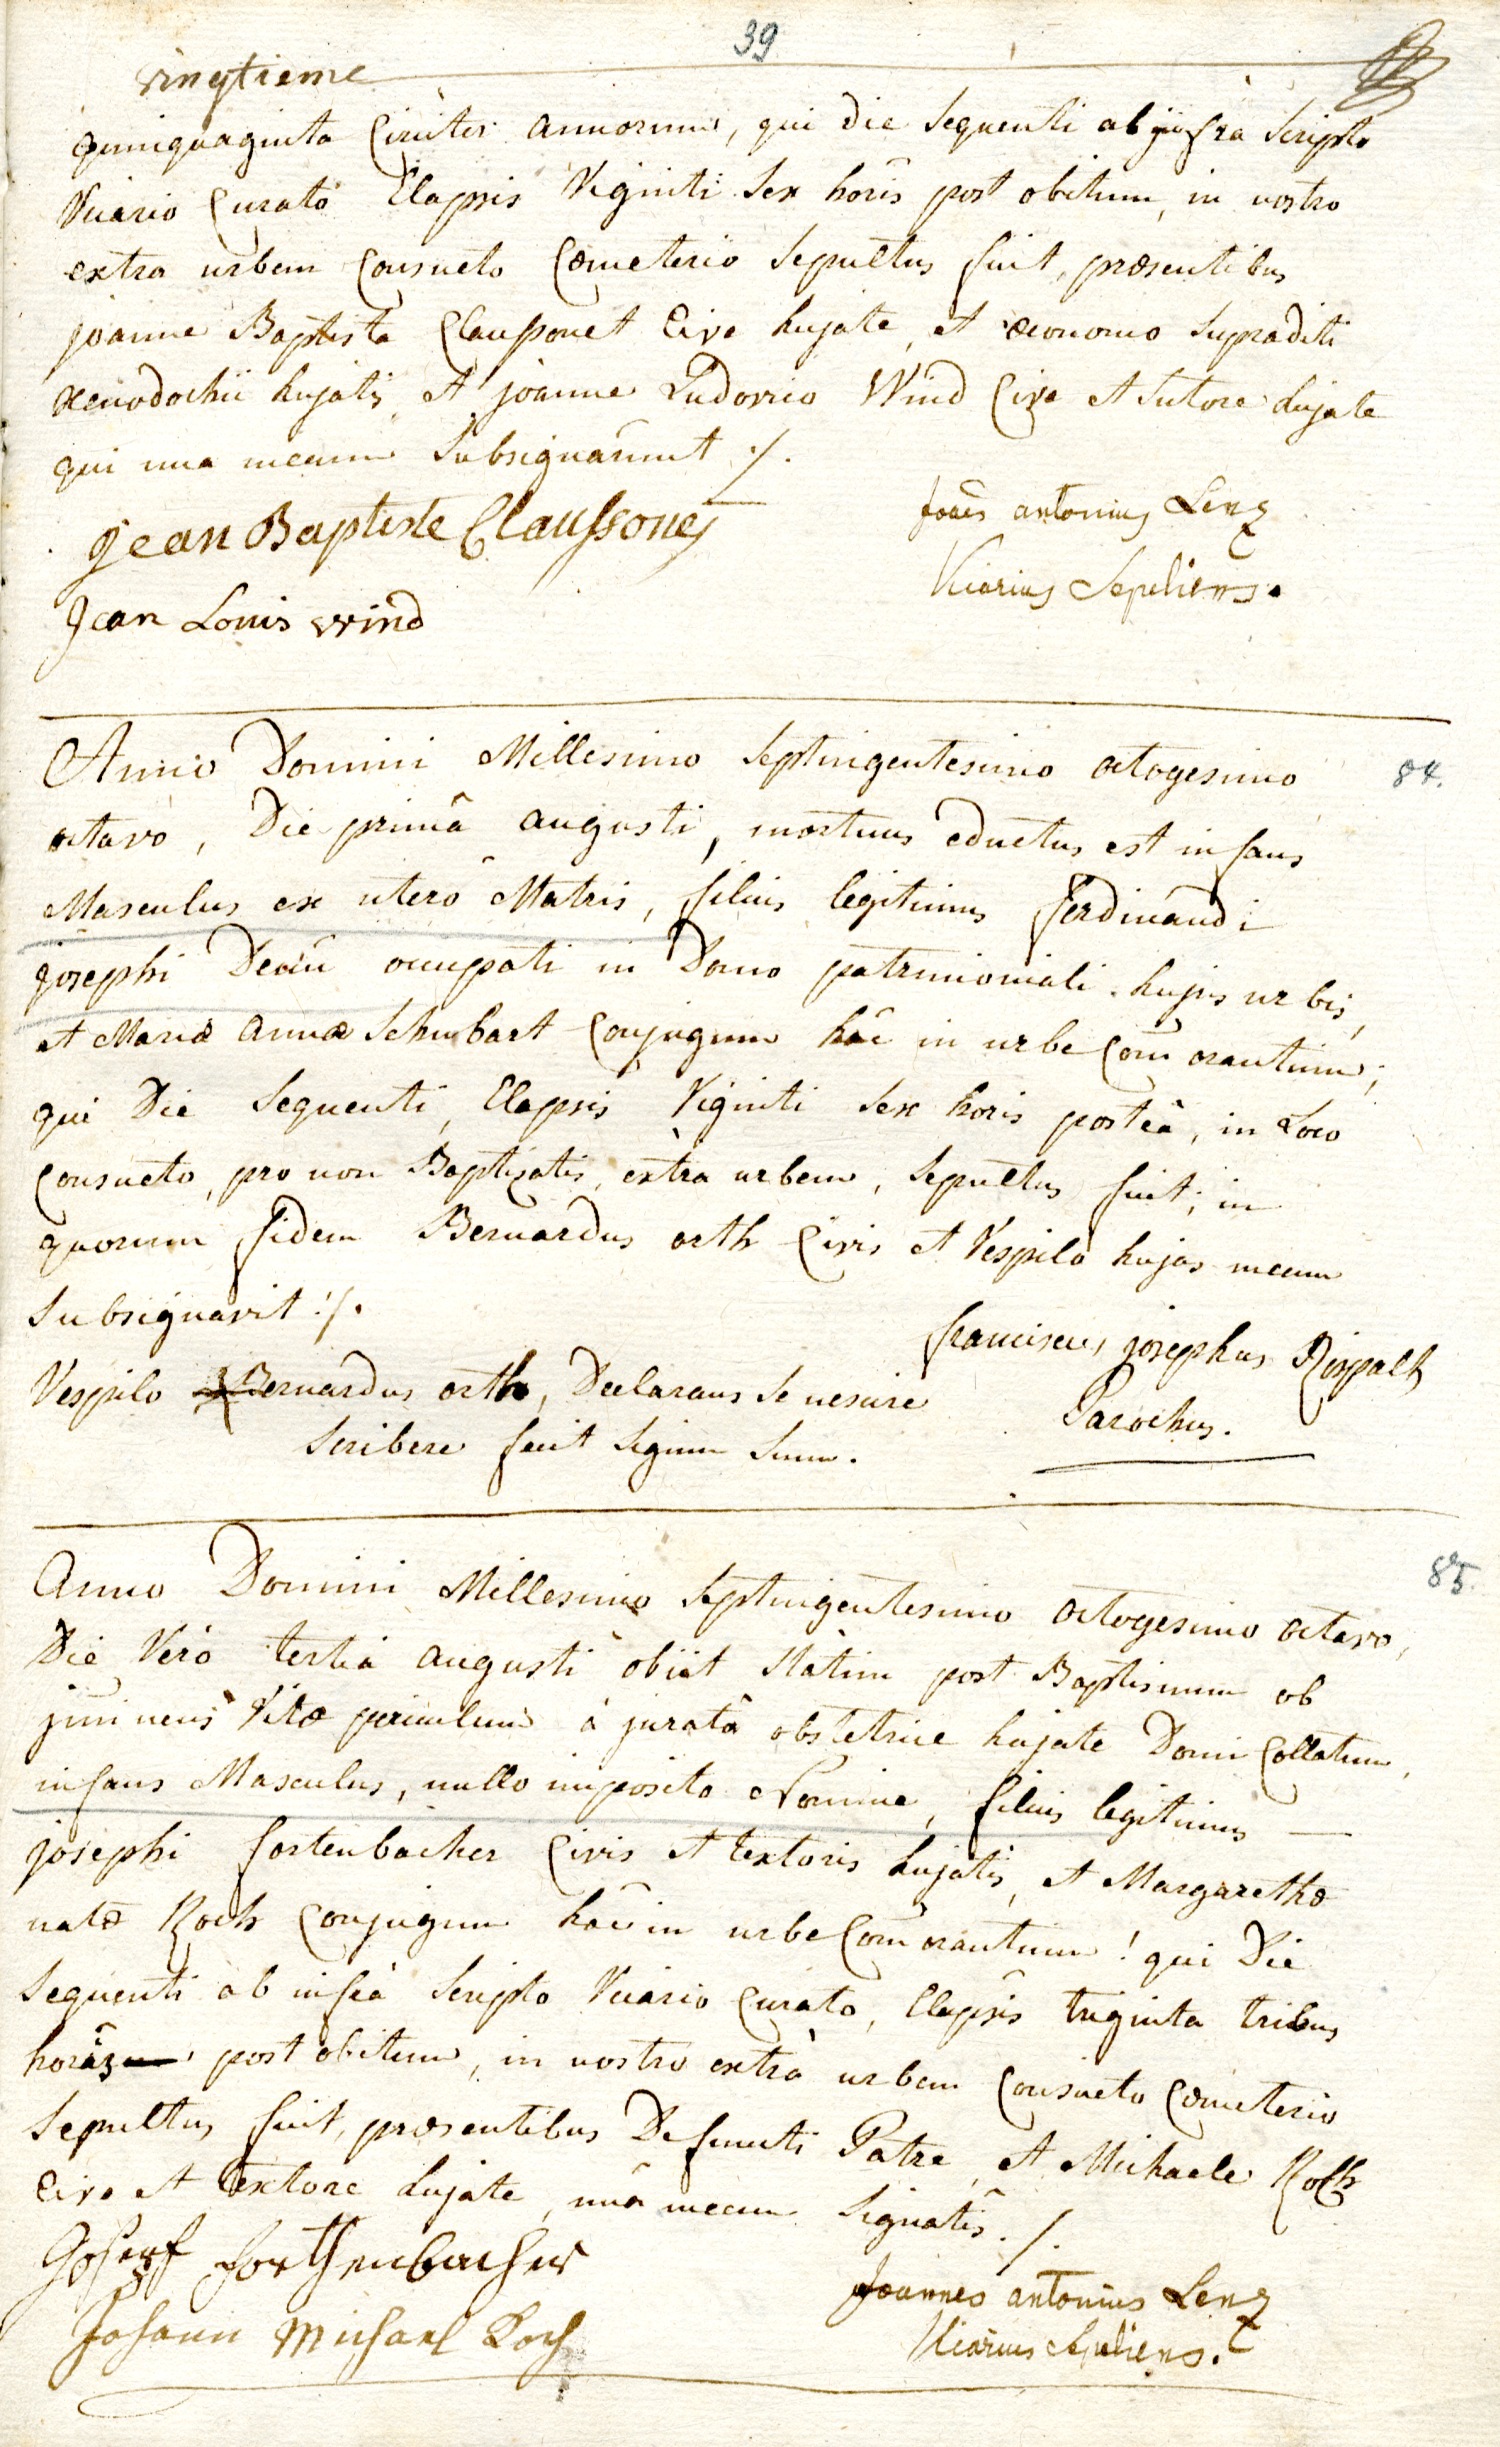 39
vingtieme
quinquaginta Circiter annorum, qui die sequenti ab infra scripto
Vicario Curato Elapsis Viginti sex horis post obitum, in nostro
extra urbem Consueto Cœmeterio sepultus fuit, præsentibus
joanne Baptista Claussonet Cive hujate, et œconomo supradicti
xenodochii hujatis, et joanne Ludovico Wind Cive et sutore hujate
qui una mecum subsignârunt ./.
Jean Baptiste Claussonet
Joaês antonius Lenz
Vicarius Sepeliens.
Jean Louis Wind
Anno Domini Millesimo septingentesimo octogesimo
84.
octavo, Die primâ augusti, mortuus eductus est infans
Masculus ex utero Matris, filius legitimus ferdinandi
josephi occupati in Domo patrimoniali hujus urbis,
et Mariæ annæ Schubart Conjugum hâc in urbe Com̄orantium;
qui Die sequenti, Elapsis Viginti sex horis posteà, in Loco
Consueto, pro non Baptizatis, extra urbem, sepultus fuit; in
quorum fidem Bernardus orth Civis et Vespilo hujas mecum
subsignavit ./.
franciscus josephus
Parochus.
Vespilo Bernardus orth, Declarans se nescire
scribere fecit signum suum.
Anno Domini Millesimo septingentesimo octogesimo octavo,
85.
Die Verò tertiâ augusti obiit stàtim post Baptismum ob
im̄inens Vitæ periculum à juratâ obstetrice hujate Domi Collatum,
infans Masculus, nullo imposito Nomine, filius legitimus
josephi fortenbacher Civis et textoris hujatis, et Margarethæ
natæ Koch Conjugum hâc in urbe Com̄orantium! qui Die
sequenti ab infrà scripto Vicario Curato, Elapsis triginta tribus
horis post obitum, in nostro extrà urbem Consueto Cœmeterio
sepultus fuit, præsentibus Defuncti Patre, et Michaele Koch
Cive et textore hujate, unà mecum signatis ./.
Joseph forthenbacher
Johann Michael Koch
Joannes antonius Lenz
Vicarius Sepeliens.